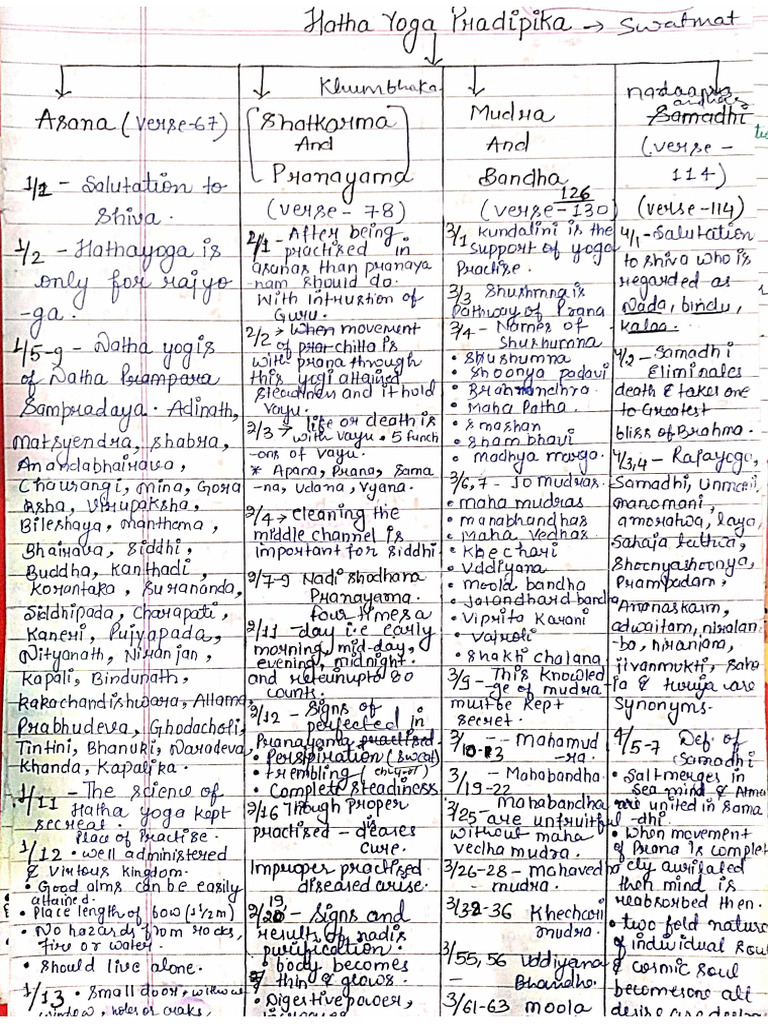 Hatha Yoga Pradipika → Swatmat
Asana (verse-67)
1/1 - Salutation to
Shiva.
1/2 - Hathayoga is
only for rajyo
-ga.
1/5-9 - Natha yogis
of Natha Prampara
Sampradaya. Adinath,
Matsyendra, Shabra,
Anandabhairava,
Chaurangi, Mina, Gora
ksha, Virupaksha,
Bileshaya, Manthema,
Bhairava, Siddhi,
Buddha, Kanthadi,
Korantaka, Surananda,
Siddhipada, Charapati,
Kaneri, Pujyapada,
Nityanath, Niranjan,
Kapali, Bindunath,
Kakachandishwara, Allama
Prabhudeva, Ghodacholi,
Tintini, Bhanuki, Naradeva,
Khanda, Kapalika.
1/11 - The science of
Hatha yoga kept
secreat.
Place of Practise.
1/12 • well administered
& Virtous Kingdom.
• Good alms can be easily
attained.
• Place length of bow (1½m)
• No hazards from rocks,
fire or water.
• Should live alone.
1/13 • Small door, without
window, holes or craks,
Khumbhaka
Shatkarma
And
Pranayama
(verse- 78)
2/1 - After being
practised in
asanas than pranaya
nam should do.
With intrustion of
Guru.
2/2 → When movement
of chitta is
with prana through
this yogi attained
steadness and it hold
vayu.
2/3 → life or death is
with vayu. 5 funch
-ons of vayu.
* Apana, Prana, Sama
-na, Udana, Vyana.
2/4 → cleaning the
middle channel is
important for siddhi
2/7-9 Nadi Shodhana
Pranayama.
four times a
2/11 -day i.e early
morning, mid-day,
evening, midnight.
and retein upto 80
count.
2/12 - Signs of
perfected in
Pranayama practised
• Perspiration (sweat)
• trembling
• Complete steadiness
2/16 Though proper
practised - diseases
cure.
Improper practised
diseased arise.
19,
2/20 - Signs and
result of nadis
purification.
• body becomes
thin & glows.
• Digestive power,
Mudra
And
Bandha
126
(verse-130)
3/1 Kundalini is the
support of yoga
Practise.
3/3 Shushmna is
Pathway of Prana
3/4 - Names of
Shushumna
• Shushumna
• Shoonya padavi
• Brahmrandhra
• Maha Patha.
• Smashan
• Sham bhavi
• madhya marga.
3/6,7 - 10 mudras.
• maha mudras
• manabhandhas
• Maha Vedhas.
• Khechari
• Uddiyana
• moola bandha
• Jalandhard bandha
• Viprita Karani
• Vajroli
• Shakti chalana,
3/9 - This knowled
-ge of mudra-
must be kept
secret.
3/10-13 - Mahamud
-ra.
3/19-22 - Mahabandha.
3/25 - Mahabandha
are unfruitful
without maha
vedha mudra.
3/26-28 - mahavedha
mudra.
3/32-36 Khechari
mudra.
3/55,56 Uddiyana
- Bhandha.
3/61-63 moola
Samadhi
(verse -
114)
(verse-114)
4/1 - Salutation
to Shiva who is
regarded as
Nada, bindu,
kalaa.
4/2 - Samadhi
Eliminates
death & takes one
to Greatest
bliss of Brahma.
4/3,4 - Rajayoga,
Samadhi, Unmani,
manomani,
amoratwa, laya,
Sahaja tattva,
Shoonyashoonya,
Prampadam,
Amanaskam,
adwaitam, niralan
-ba, niranjana,
jivanmukti, saha
-ja & turija are
Synonyms.
4/5-7 Def. of
Samadhi
• Salt merges in
Sea mind & Atma
are united in sama
-dhi.
• When movement
of Prana is complet
ely
then mind is
reabsorbed then.
• two fold nature
of individual soul
& cosmic soul
becomes one all
desire are